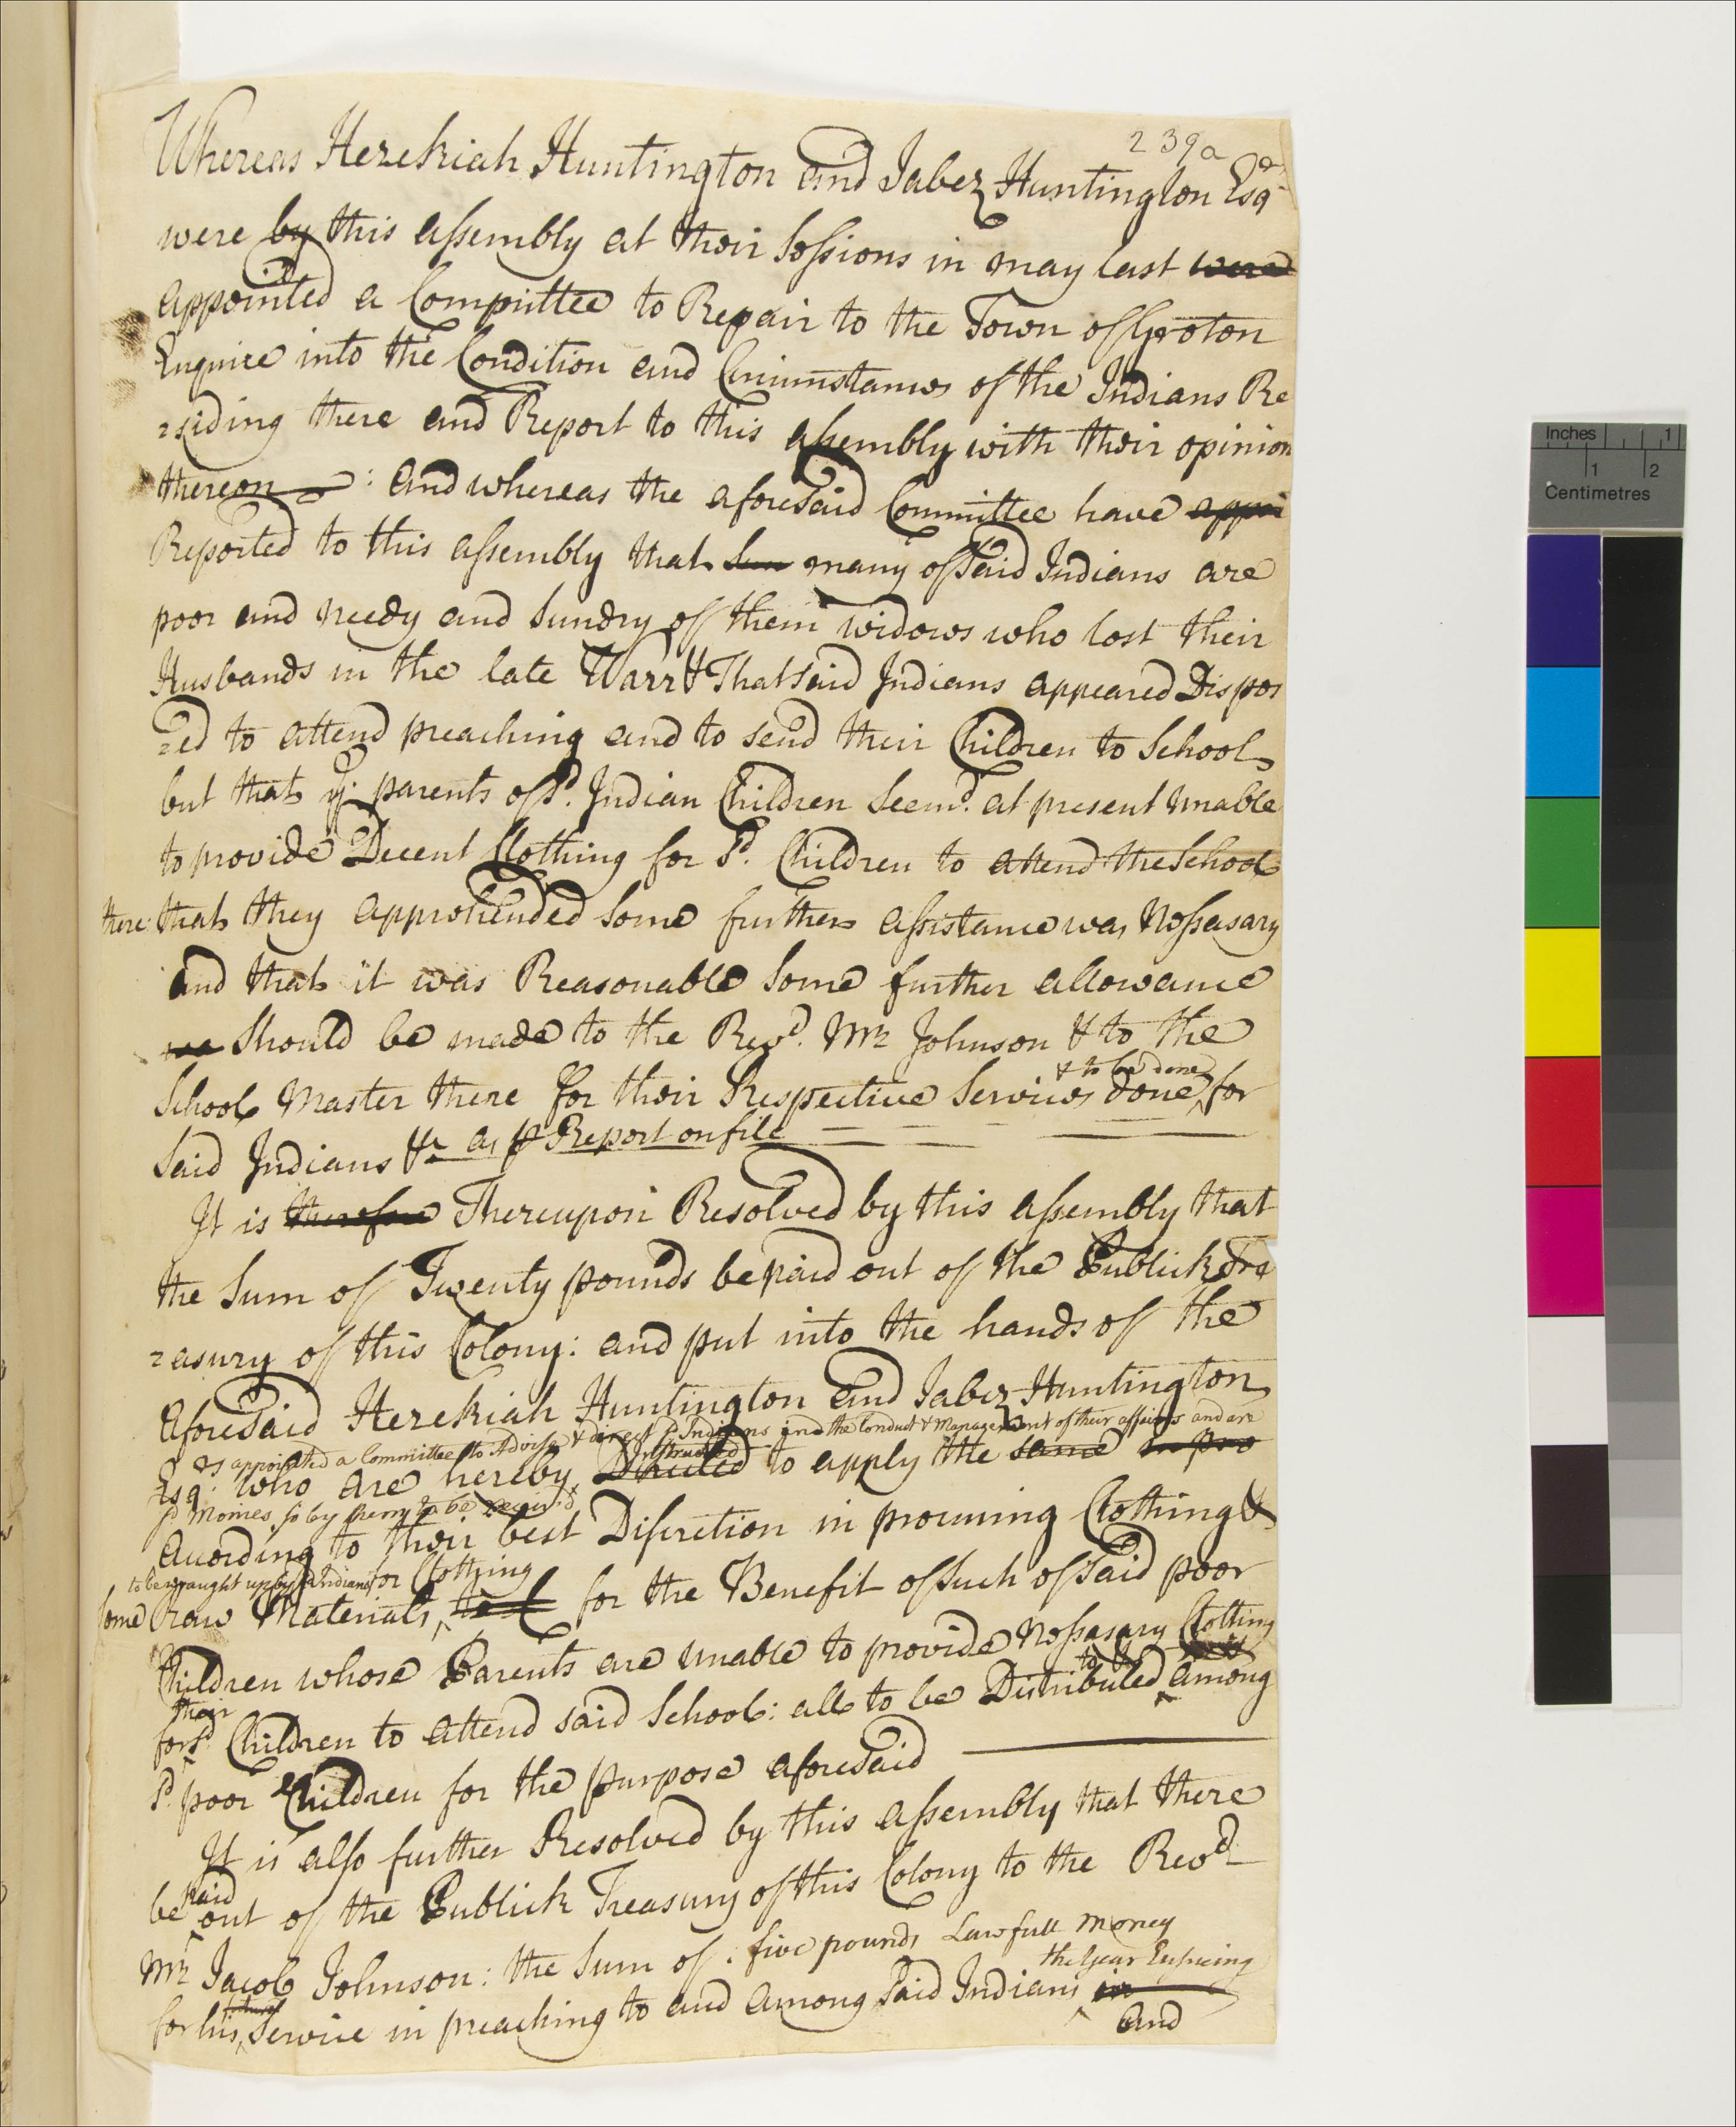 239a
Whereas Hezekiah Huntington and Jabez Huntington Esqrs
were by this assembly at their Sessions in may last were
appointed a Committee to Repair to the Town of Groton
Enquire into the Condition and Circumstances of the Indians Re
=siding there and Report to this assembly with their opinion
thereon : and whereas the aforesaid Committee have appoi
Reported to this assembly that Sun many of said Indians are
poor and needy and Sundry of them widows who lost their
Husbands in the late Warr & That said Indians appeared Dispos
=ed to attend preaching and to send their Children to School
but that ye parents of sd. Indian Children Seemd. at present unable
to provide Decent Clothing for sd. Children to attend the School
there: that they apprehended Some further assistance was Nessasary
and that it was Reasonable Some further allowance
Should be made to the Revd. Mr Johnson & to the
& to be done
School Master there for their Respective Services done for
Said Indians &c as pr Report on file
It is therefore Thereupon Resolved by this assembly that
the Sum of Twenty pounds be paid out of the Publick Tre
=asury of this Colony: and put into the hands of the
aforesaid Hezekiah Huntington and Jabez Huntington
appointed a Committee to Advise & direct sd Indians in the Conduct & Management of their affairs and are
Instructed
Esqrs who are hereby Directed to apply the same in pro
sd Monies so by them to be receivd
according to their best Discretion in procuring Clothing &
to be wraught up by sd Indians for Clothing
some Raw Materials for the Benefit of such of said poor
Children whose Parents are unable to provide Nessasary Clothing
their
to &
for sd Children to attend said School: all to be Distributed among
sd. poor Children for the purpose aforesaid
It is also further Resolved by this assembly that there
paid
be out of the Publick Treasury of this Colony to the Revd
Mr Jacob Johnson: the Sum of: five pounds Lawfull Money
the Year Ensuing
future
for his Service in preaching to and among said Indians in
and
Inches 1
1 2
Centimetres